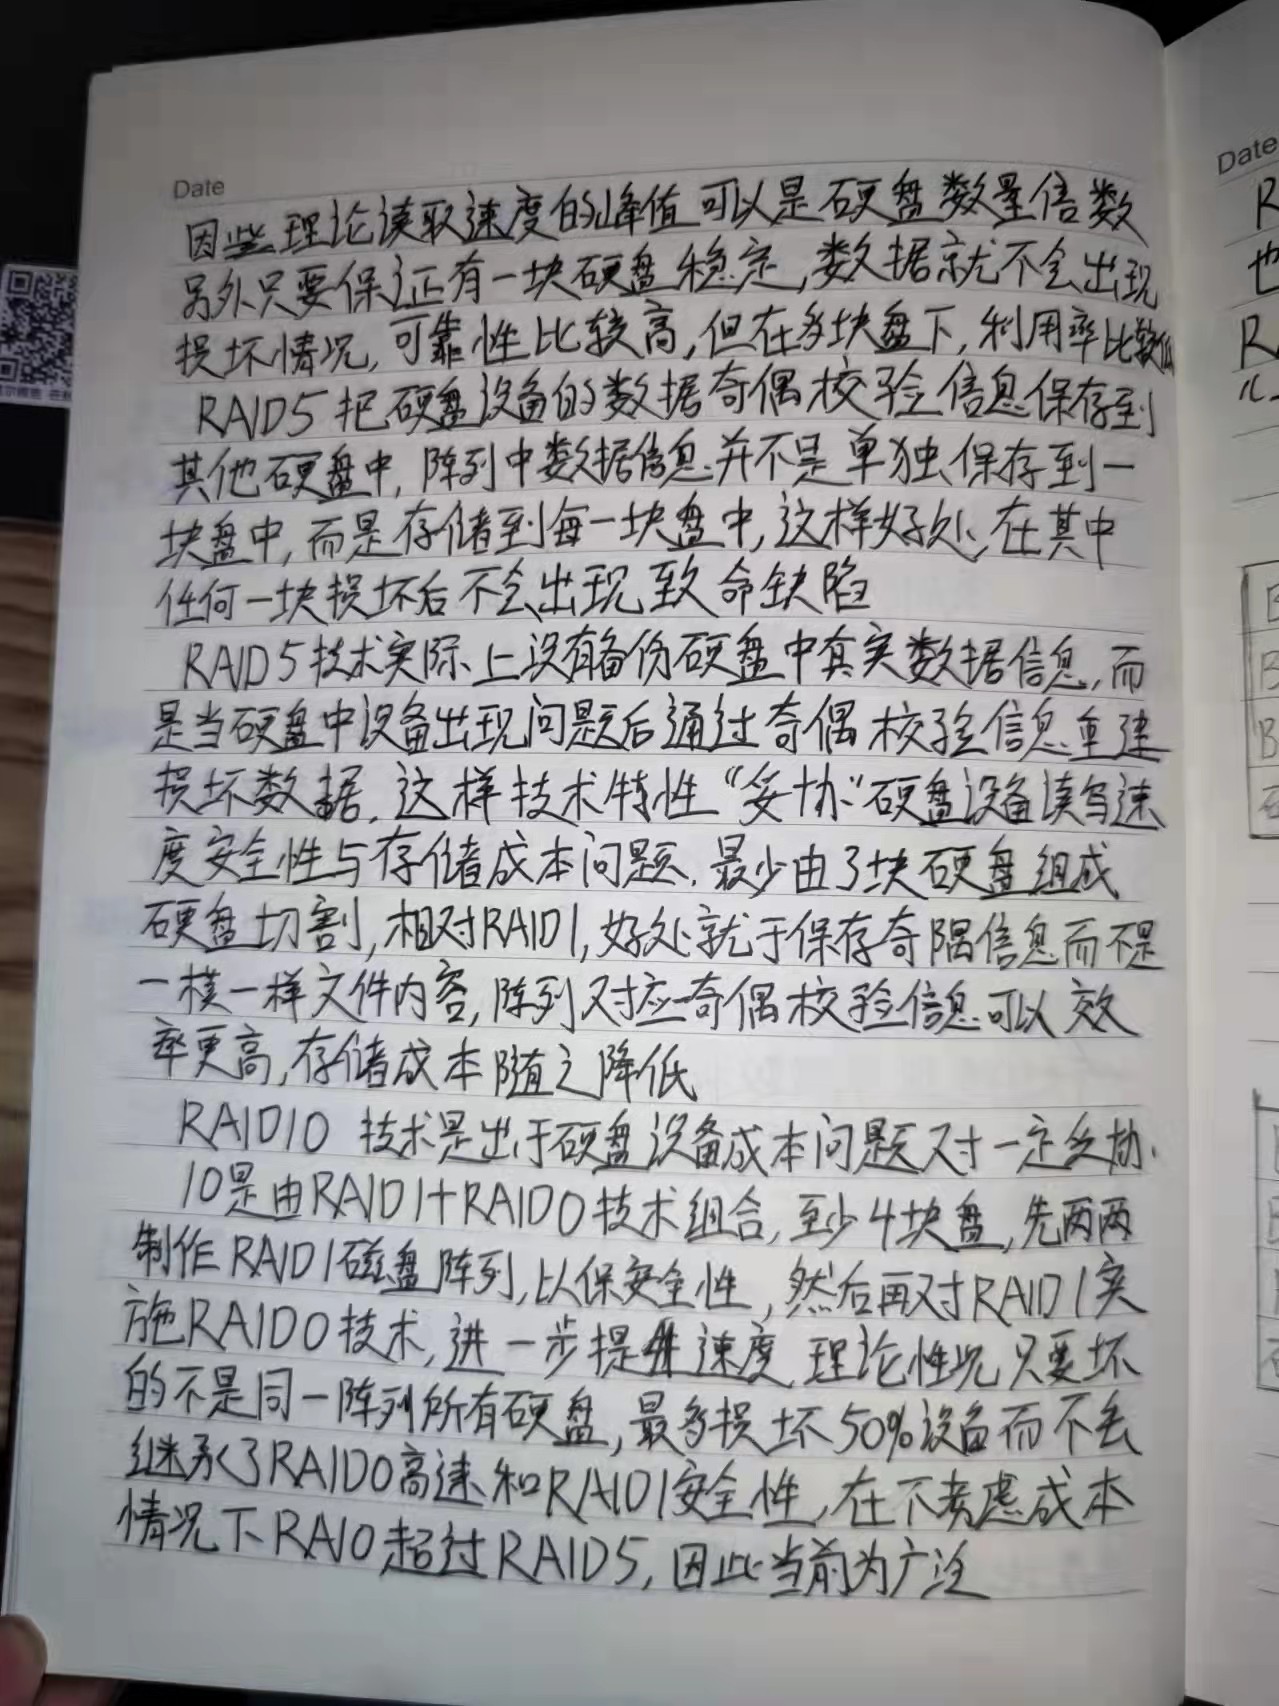 Date
因些理论读取速度的峰值可以是硬盘数量倍数
另外只要保证有一块硬盘稳定,数据就不会出现
损坏情况,可靠性比较高,但在多块盘下,利用率比较低
RAID5把硬盘设备的数据奇偶校验信息保存到
其他硬盘中,阵列中数据信息并不是单独保存到一
块盘中,而是存储到每一块盘中,这样好处,在其中
任何一块损坏后不会出现致命缺陷
RAID5技术实际上没有备份硬盘中真实数据信息,而
是当硬盘中设备出现问题后通过奇偶校验信息重建
损坏数据,这样技术特性“妥协”硬盘设备读写速
度安全性与存储成本问题.最少由3块硬盘组成
硬盘切割,相对RAID1,好处就于保存奇隅信息而不是
一模一样文件内容,阵列对应一奇偶校验信息可以效
率更高,存储成本随之降低
RAID10 技术是出于硬盘设备成本问题对一定妥协.
10是由RAID1+RAID0技术组合,至少4块盘,先两两
制作RAID1磁盘阵列,以保安全性,然后再对RAID1实
施RAID0技术,进一步提升速度,理论性况只要坏
的不是同一阵列所有硬盘,最多损坏50%设备而不丢
继承了RAID0高速和RAID1安全性,在不考虑成本
情况下RAI0超过RAID5,因此当前为广泛
Date
R
也
R